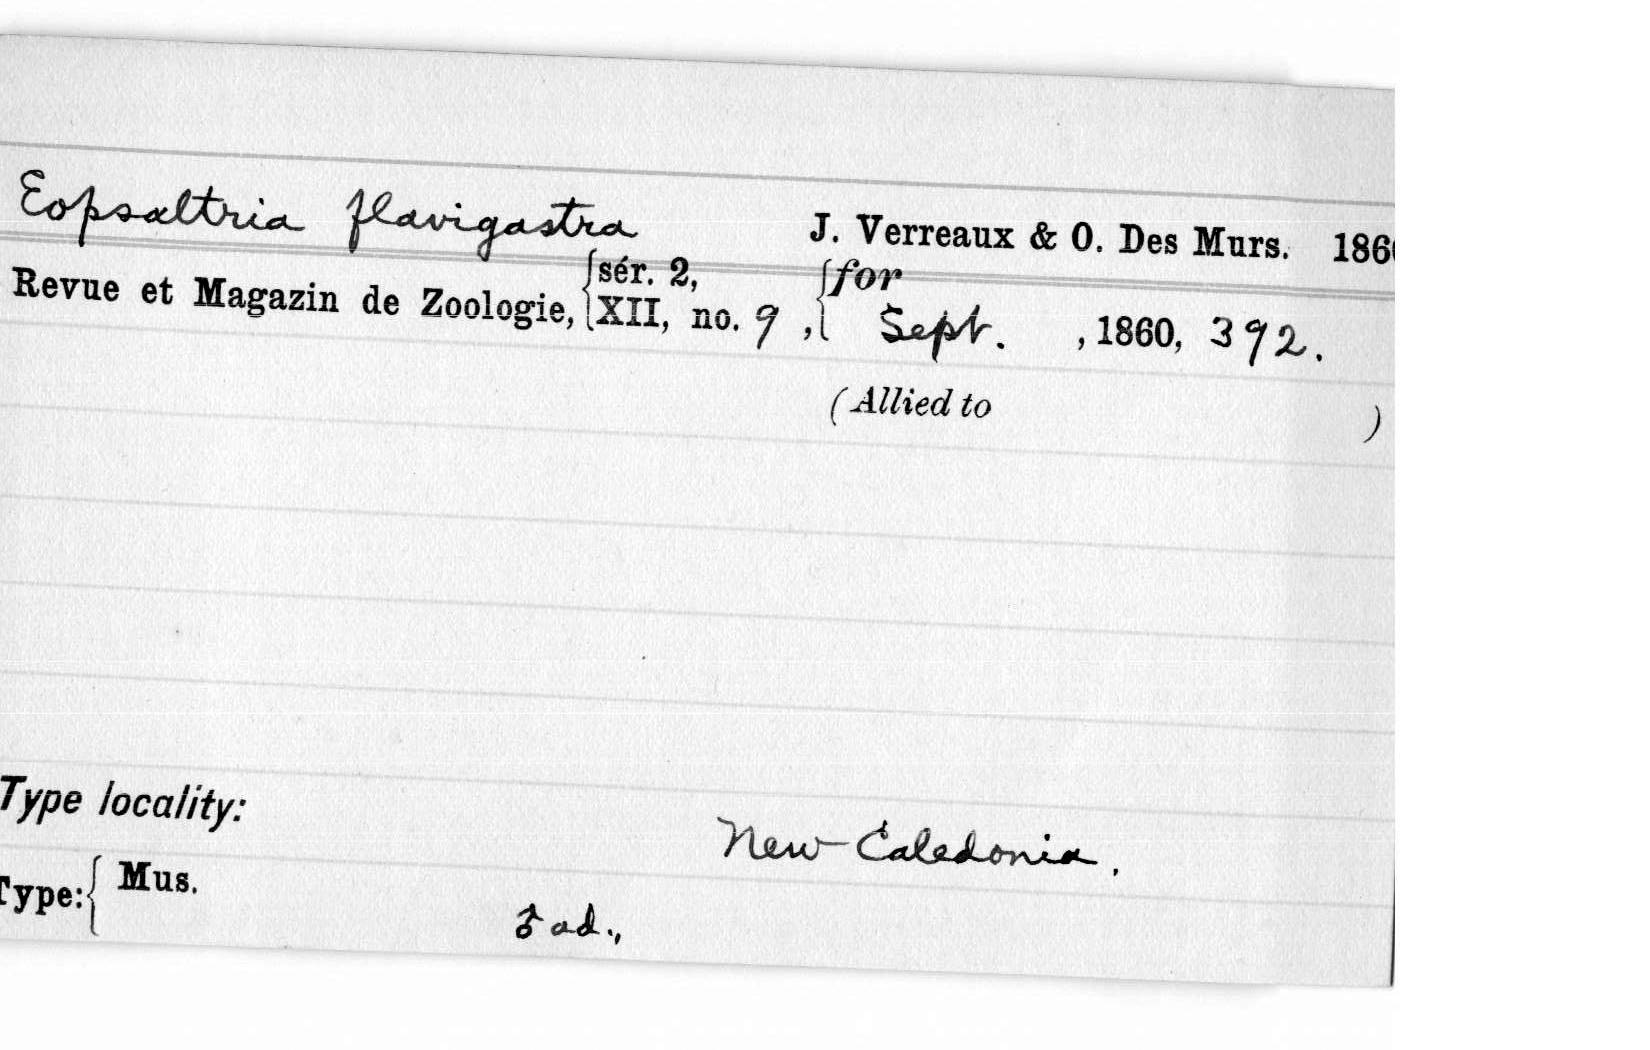 Eopsaltria flavigastra J. Verreaux & O. Des Murs. 186
Revue et Magazin de Zoologie, {sér. 2, XII, no. 9 , {for Sept. , 1860, 392.
(Allied to )
Type locality:
New Caledonia.
Type: { Mus.
♂ ad.,